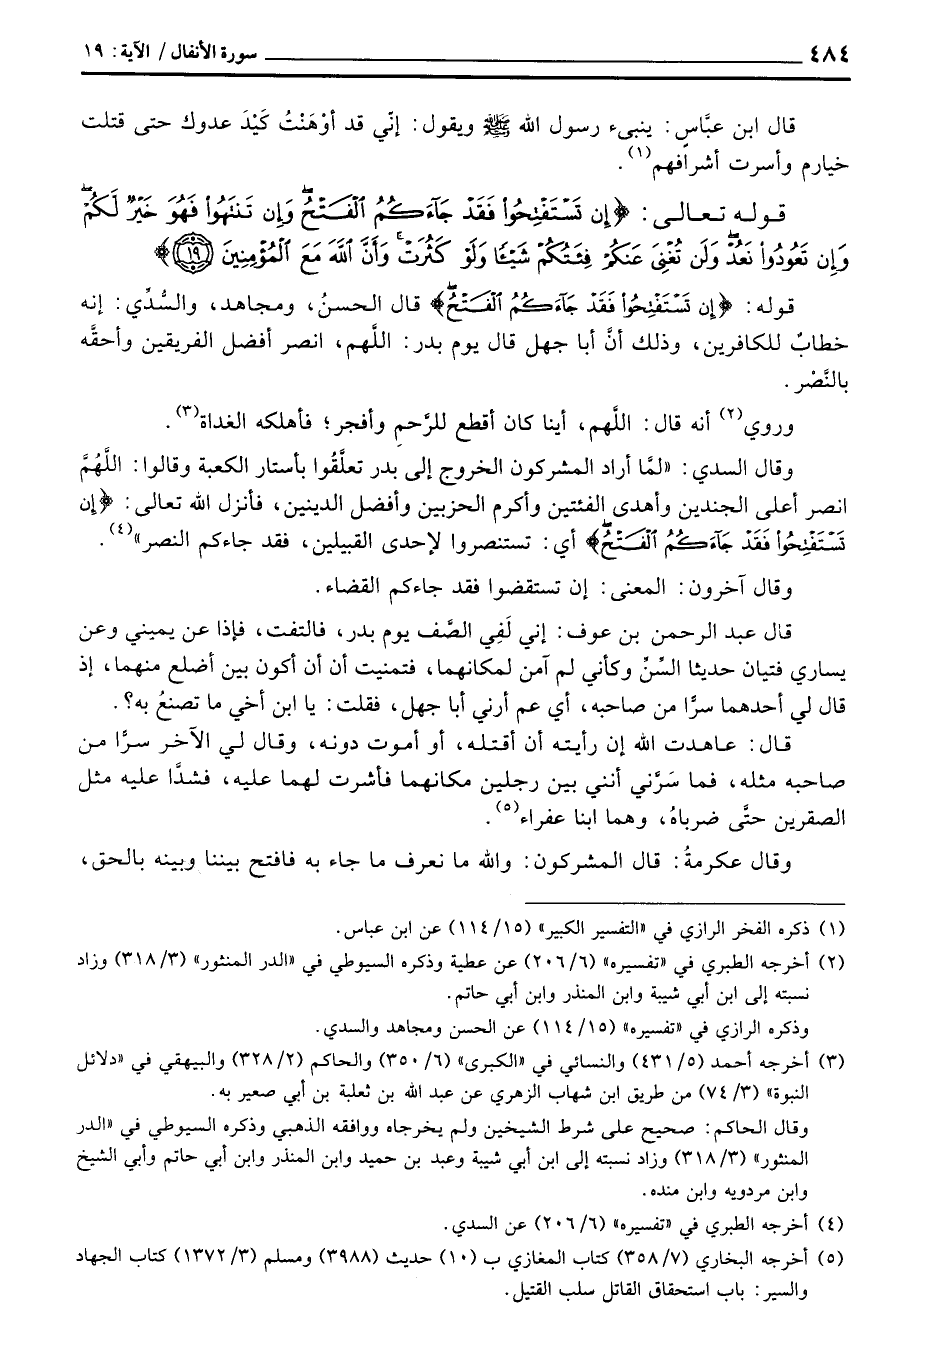 ٤٨٤ سورة الأنفال / الآية: ١٩
قال ابن عبَّاسٍ: ينبىء رسول الله ﷺ ويقول: إنّي قد أوْهَنْتُ كَيْدَ عدوك حتى قتلت
خيارم وأسرت أشرافهم(١).
قوله تعالى: ﴿إِن تَسْتَفْنِحُواْ فَقَدْ جَآءَكُمُ ٱلْفَكَتْحُ وَإِن تَنتَهُواْ فَهُوَ خَيْرٌ لَّكُمْ
وَإِن تَعُودُواْ نَعُدْ وَلَن تُغْنِىَ عَنكُمْ فِئَتُكُمْ شَيْـًٔا وَلَوْ كَثُرَتْ وَأَنَّ ٱللَّهَ مَعَ ٱلْمُؤْمِنِينَ ١٩﴾
قوله: ﴿إِن تَسْتَفْتِحُواْ فَقَدْ جَآءَكُمُ ٱلْفَتْحُ﴾ قال الحسنُ، ومجاهد، والسُّدِّي: إنه
خطابٌ للكافرين، وذلك أنَّ أبا جهل قال يوم بدر: اللَّهم، انصر أفضل الفريقين وأحقَّه
بالنَّصْر.
وروي(٢) أنه قال: اللَّهم، أينا كان أقطع للرَّحم وأفجر؛ فأهلكه الغداة(٣).
وقال السدي: «لمَّا أراد المشركون الخروج إلى بدر تعلَّقُوا بأستار الكعبة وقالوا: اللَّهُمَّ
انصر أعلى الجندين وأهدى الفئتين وأكرم الحزبين وأفضل الدينين، فأنزل الله تعالى: ﴿إِن
تَسْتَفْتِحُواْ فَقَدْ جَآءَكُمُ ٱلْفَتْحُ﴾ أي: تستنصروا لإحدى القبيلين، فقد جاءكم النصر»(٤).
وقال آخرون: المعنى: إن تستقضوا فقد جاءكم القضاء.
قال عبد الرحمن بن عوف: إني لَفِي الصَّف يوم بدر، فالتفت، فإذا عن يميني وعن
يساري فتيان حديثا السِّنِّ وكأني لم آمن لمكانهما، فتمنيت أن أن أكون بين أضلع منهما، إذ
قال لي أحدهما سرًّا من صاحبه، أي عم أرني أبا جهل، فقلت: يا ابن أخي ما تصنعُ به؟.
قال: عاهدت الله إن رأيته أن أقتله، أو أموت دونه، وقال لي الآخر سرًّا من
صاحبه مثله، فما سَرَّني أنني بين رجلين مكانهما فأشرت لهما عليه، فشدَّا عليه مثل
الصقرين حتَّى ضرباهُ، وهما ابنا عفراء(٥).
وقال عكرمةُ: قال المشركون: والله ما نعرف ما جاء به فافتح بيننا وبينه بالحق،
(١) ذكره الفخر الرازي في «التفسير الكبير» (١٥/ ١١٤) عن ابن عباس.
(٢) أخرجه الطبري في «تفسيره» (٦/ ٢٠٦) عن عطية وذكره السيوطي في «الدر المنثور» (٣/ ٣١٨) وزاد
نسبته إلى ابن أبي شيبة وابن المنذر وابن أبي حاتم.
وذكره الرازي في «تفسيره» (١٥/ ١١٤) عن الحسن ومجاهد والسدي.
(٣) أخرجه أحمد (٥/ ٤٣١) والنسائي في «الكبرى» (٦/ ٣٥٠) والحاكم (٢/ ٣٢٨) والبيهقي في «دلائل
النبوة» (٣/ ٧٤) من طريق ابن شهاب الزهري عن عبد الله بن ثعلبة بن أبي صعير به.
وقال الحاكم: صحيح على شرط الشيخين ولم يخرجاه ووافقه الذهبي وذكره السيوطي في «الدر
المنثور» (٣/ ٣١٨) وزاد نسبته إلى ابن أبي شيبة وعبد بن حميد وابن المنذر وابن أبي حاتم وأبي الشيخ
وابن مردويه وابن منده.
(٤) أخرجه الطبري في «تفسيره» (٦/ ٢٠٦) عن السدي.
(٥) أخرجه البخاري (٧/ ٣٥٨) كتاب المغازي ب (١٠) حديث (٣٩٨٨) ومسلم (٣/ ١٣٧٢) كتاب الجهاد
والسير: باب استحقاق القاتل سلب القتيل.